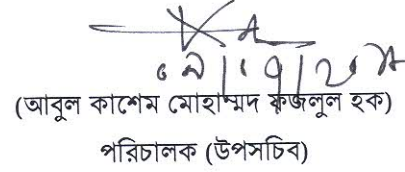 (আবুল কাশেম মোহাম্মদ ফজলুল হক)
পরিচালক (উপসচিব)